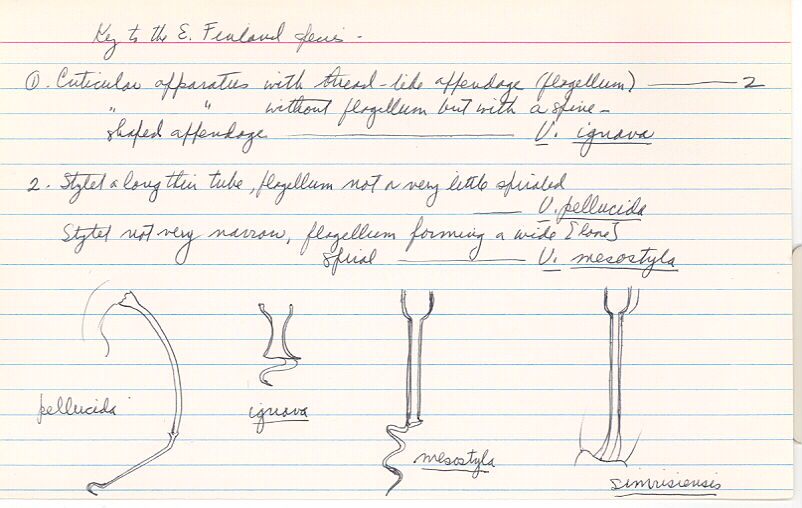 Key to the E. Finland species -
①. Cuticular apparatus with thread-like appendage (flagellum) ——— 2
" " without flagellum but with a spine-
shaped appendage ——— U. ignava
2. Stylet a long thin tube, flagellum not or very little spiraled
—— U. pellucida
Stylet not very narrow, flagellum forming a wide [lone]
spiral ——— U. mesostyla
pellucida
ignava
mesostyla
simrisiensis